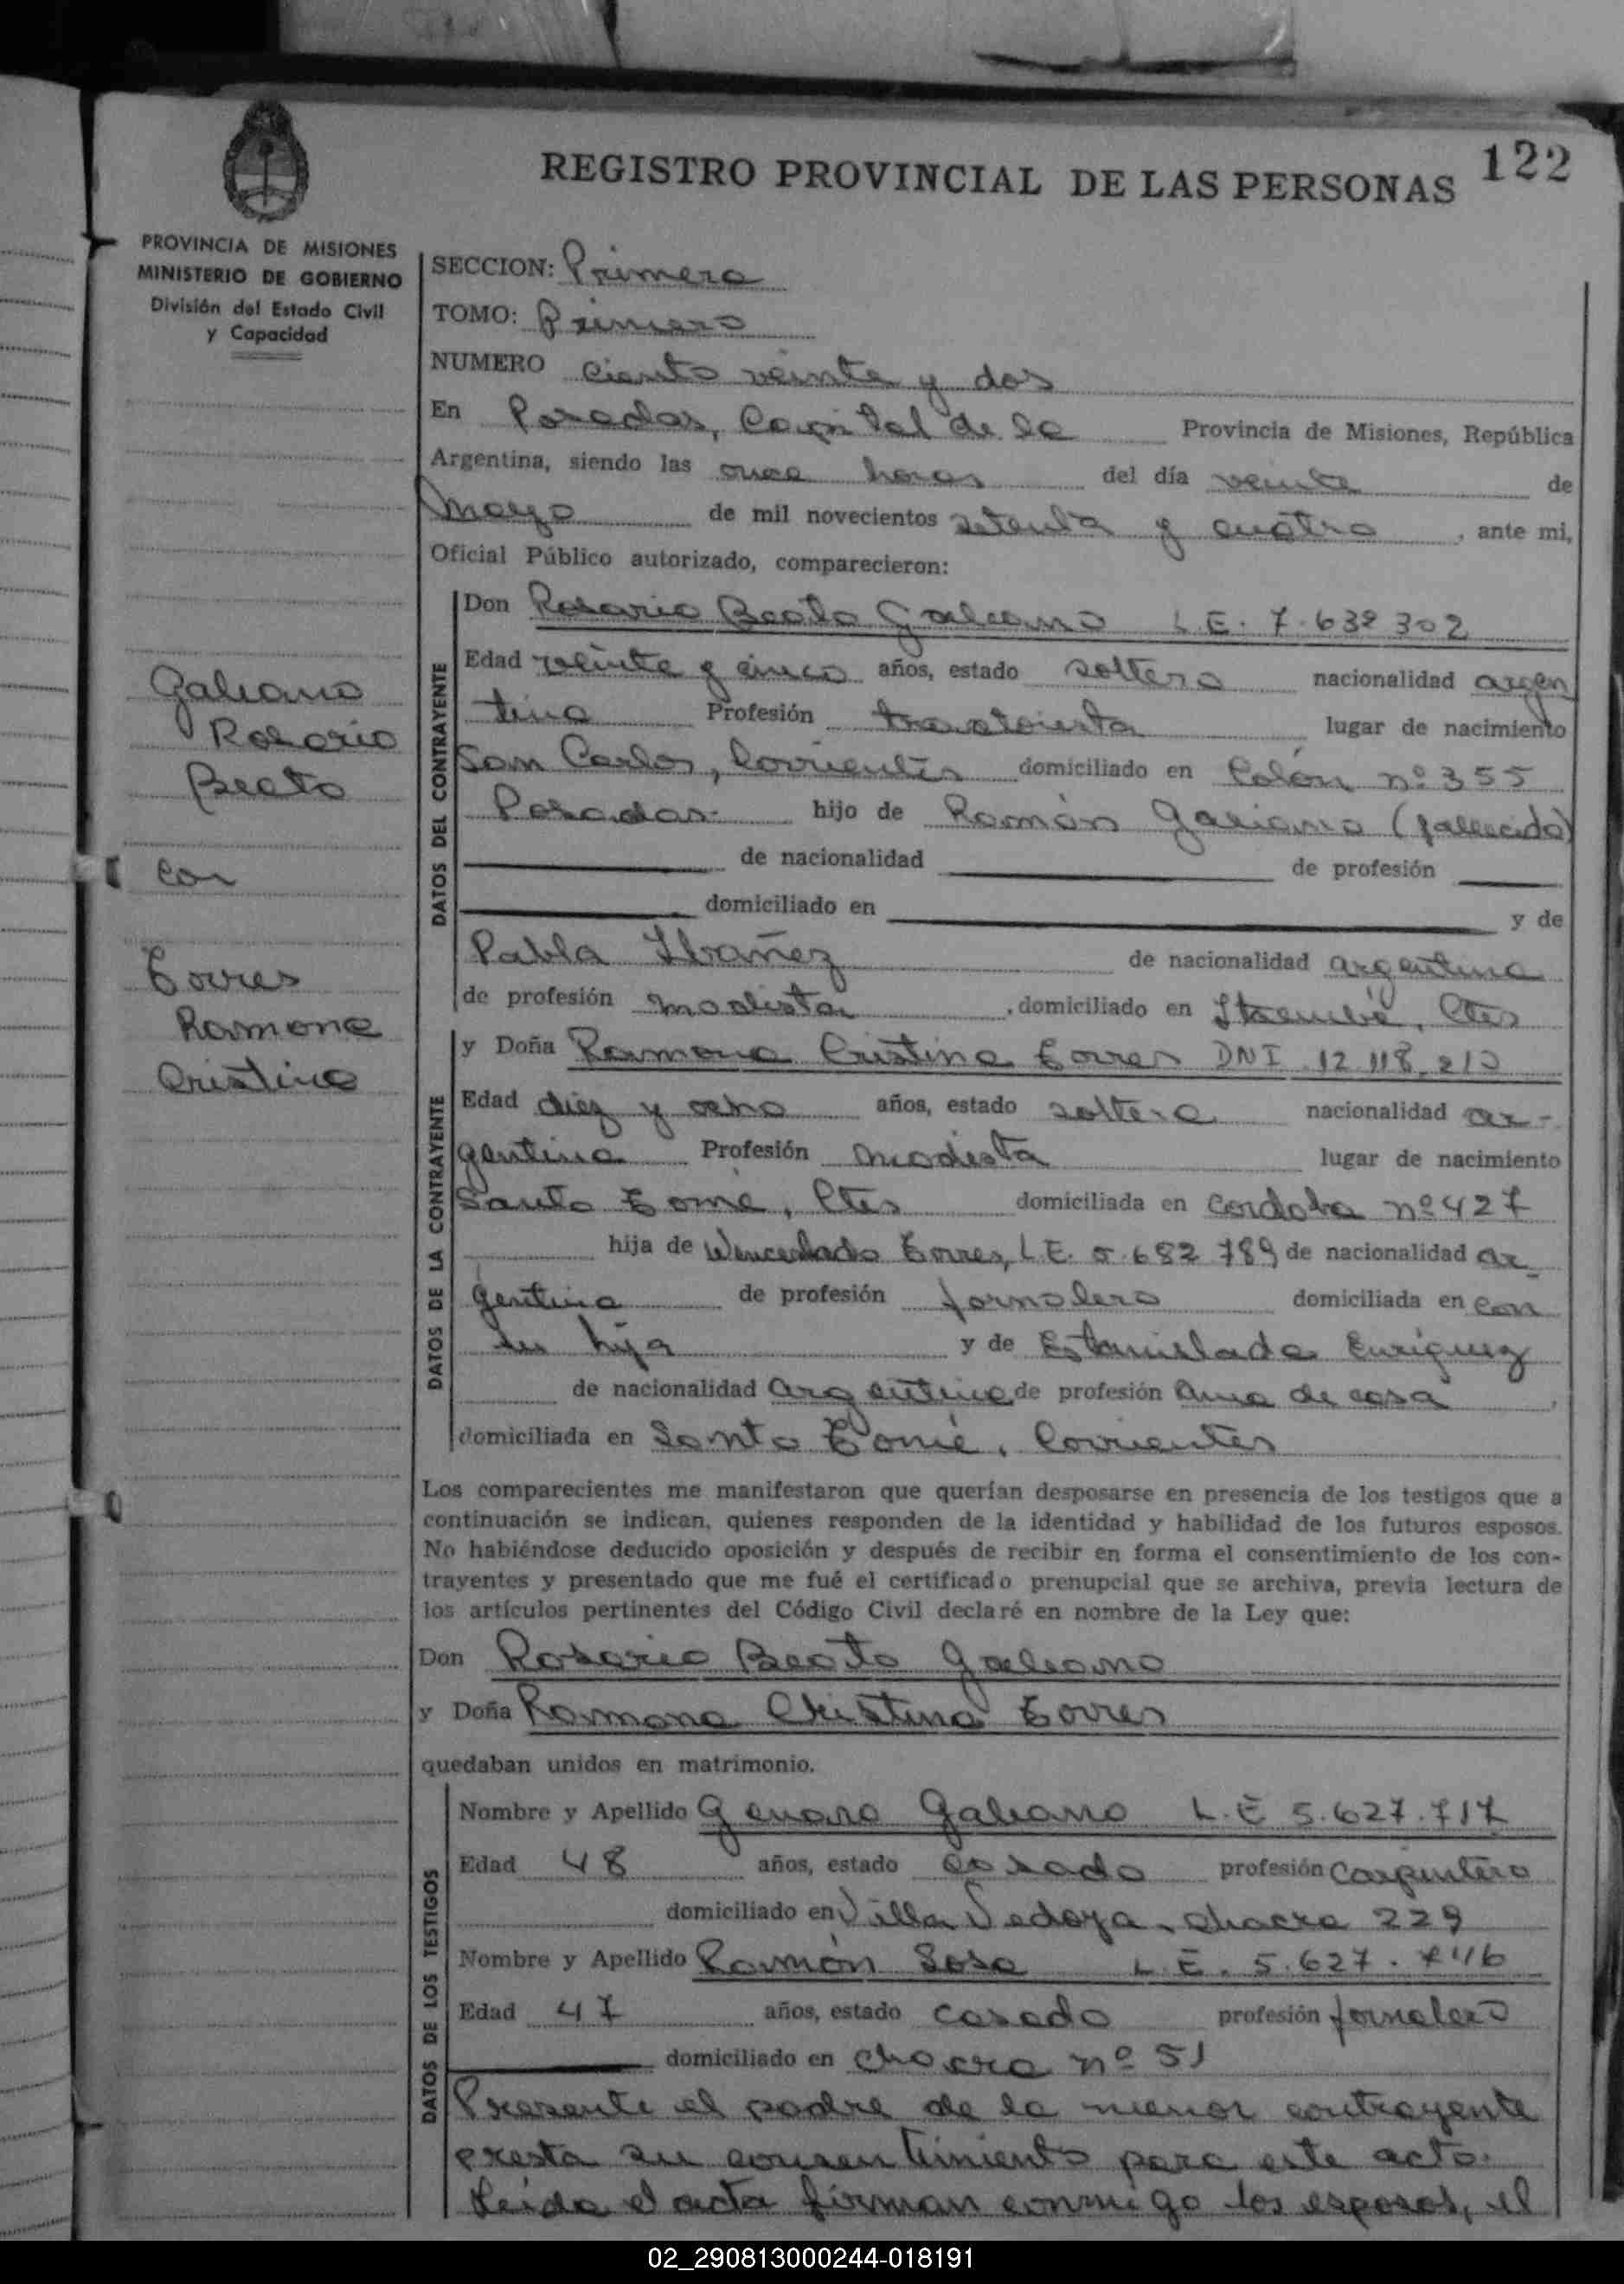 122
REGISTRO PROVINCIAL DE LAS PERSONAS
PROVINCIA DE MISIONES
MINISTERIO DE GOBIERNO
División del Estado Civil
y Capacidad
SECCION: Primera
TOMO: Primero
NUMERO ciento veinte y dos
En Posadas, Capital de la Provincia de Misiones, República
Argentina, siendo las once horas del día veinte de
Mayo de mil novecientos setenta y cuatro, ante mi,
Oficial Público autorizado, comparecieron:
Galeano
Rosario
Beato
con
Torres
Ramona
Cristina
DATOS DEL CONTRAYENTE
Don Rosario Beato Galeano L.E. 7.632 302
Edad veinte y cinco años, estado soltero nacionalidad argen
tina Profesión lugar de nacimiento
San Carlos, Corrientes domiciliado en Colón nº 355
Posadas hijo de Román Galeano (fallecido)
de nacionalidad de profesión
domiciliado en y de
Pabla Ibañez de nacionalidad argentina
de profesión modista, domiciliado en Itaembé, Ctes
DATOS DE LA CONTRAYENTE
y Doña Ramona Cristina Torres DNI 12 118.210
Edad diez y ocho años, estado soltera nacionalidad ar-
gentina Profesión modista lugar de nacimiento
Santo Tomé, Ctes domiciliada en Cordoba nº 427
hija de Wenceslado Torres, L.E. 5.682 789 de nacionalidad ar-
gentina de profesión jornalero domiciliada en con
su hija y de Estanislada Enriquez
de nacionalidad argentina de profesión ama de casa,
domiciliada en Santo Tomé, Corrientes
Los comparecientes me manifestaron que querían desposarse en presencia de los testigos que a
continuación se indican, quienes responden de la identidad y habilidad de los futuros esposos.
No habiéndose deducido oposición y después de recibir en forma el consentimiento de los con-
trayentes y presentado que me fué el certificado prenupcial que se archiva, previa lectura de
los artículos pertinentes del Código Civil declaré en nombre de la Ley que:
Don Rosario Beato Galeano
y Doña Ramona Cristina Torres
quedaban unidos en matrimonio.
DATOS DE LOS TESTIGOS
Nombre y Apellido Genaro Galeano L.E 5.627.717
Edad 48 años, estado casado profesión Carpintero
domiciliado en Villa Sedoya, chacra 229
Nombre y Apellido Ramón Sosa L.E. 5.627.746
Edad 47 años, estado casado profesión jornalero
domiciliado en chacra nº 51
Presente el padre de la menor contrayente
presta su consentimiento para este acto.
Leída el acta firman conmigo los esposos, el
02_290813000244-018191